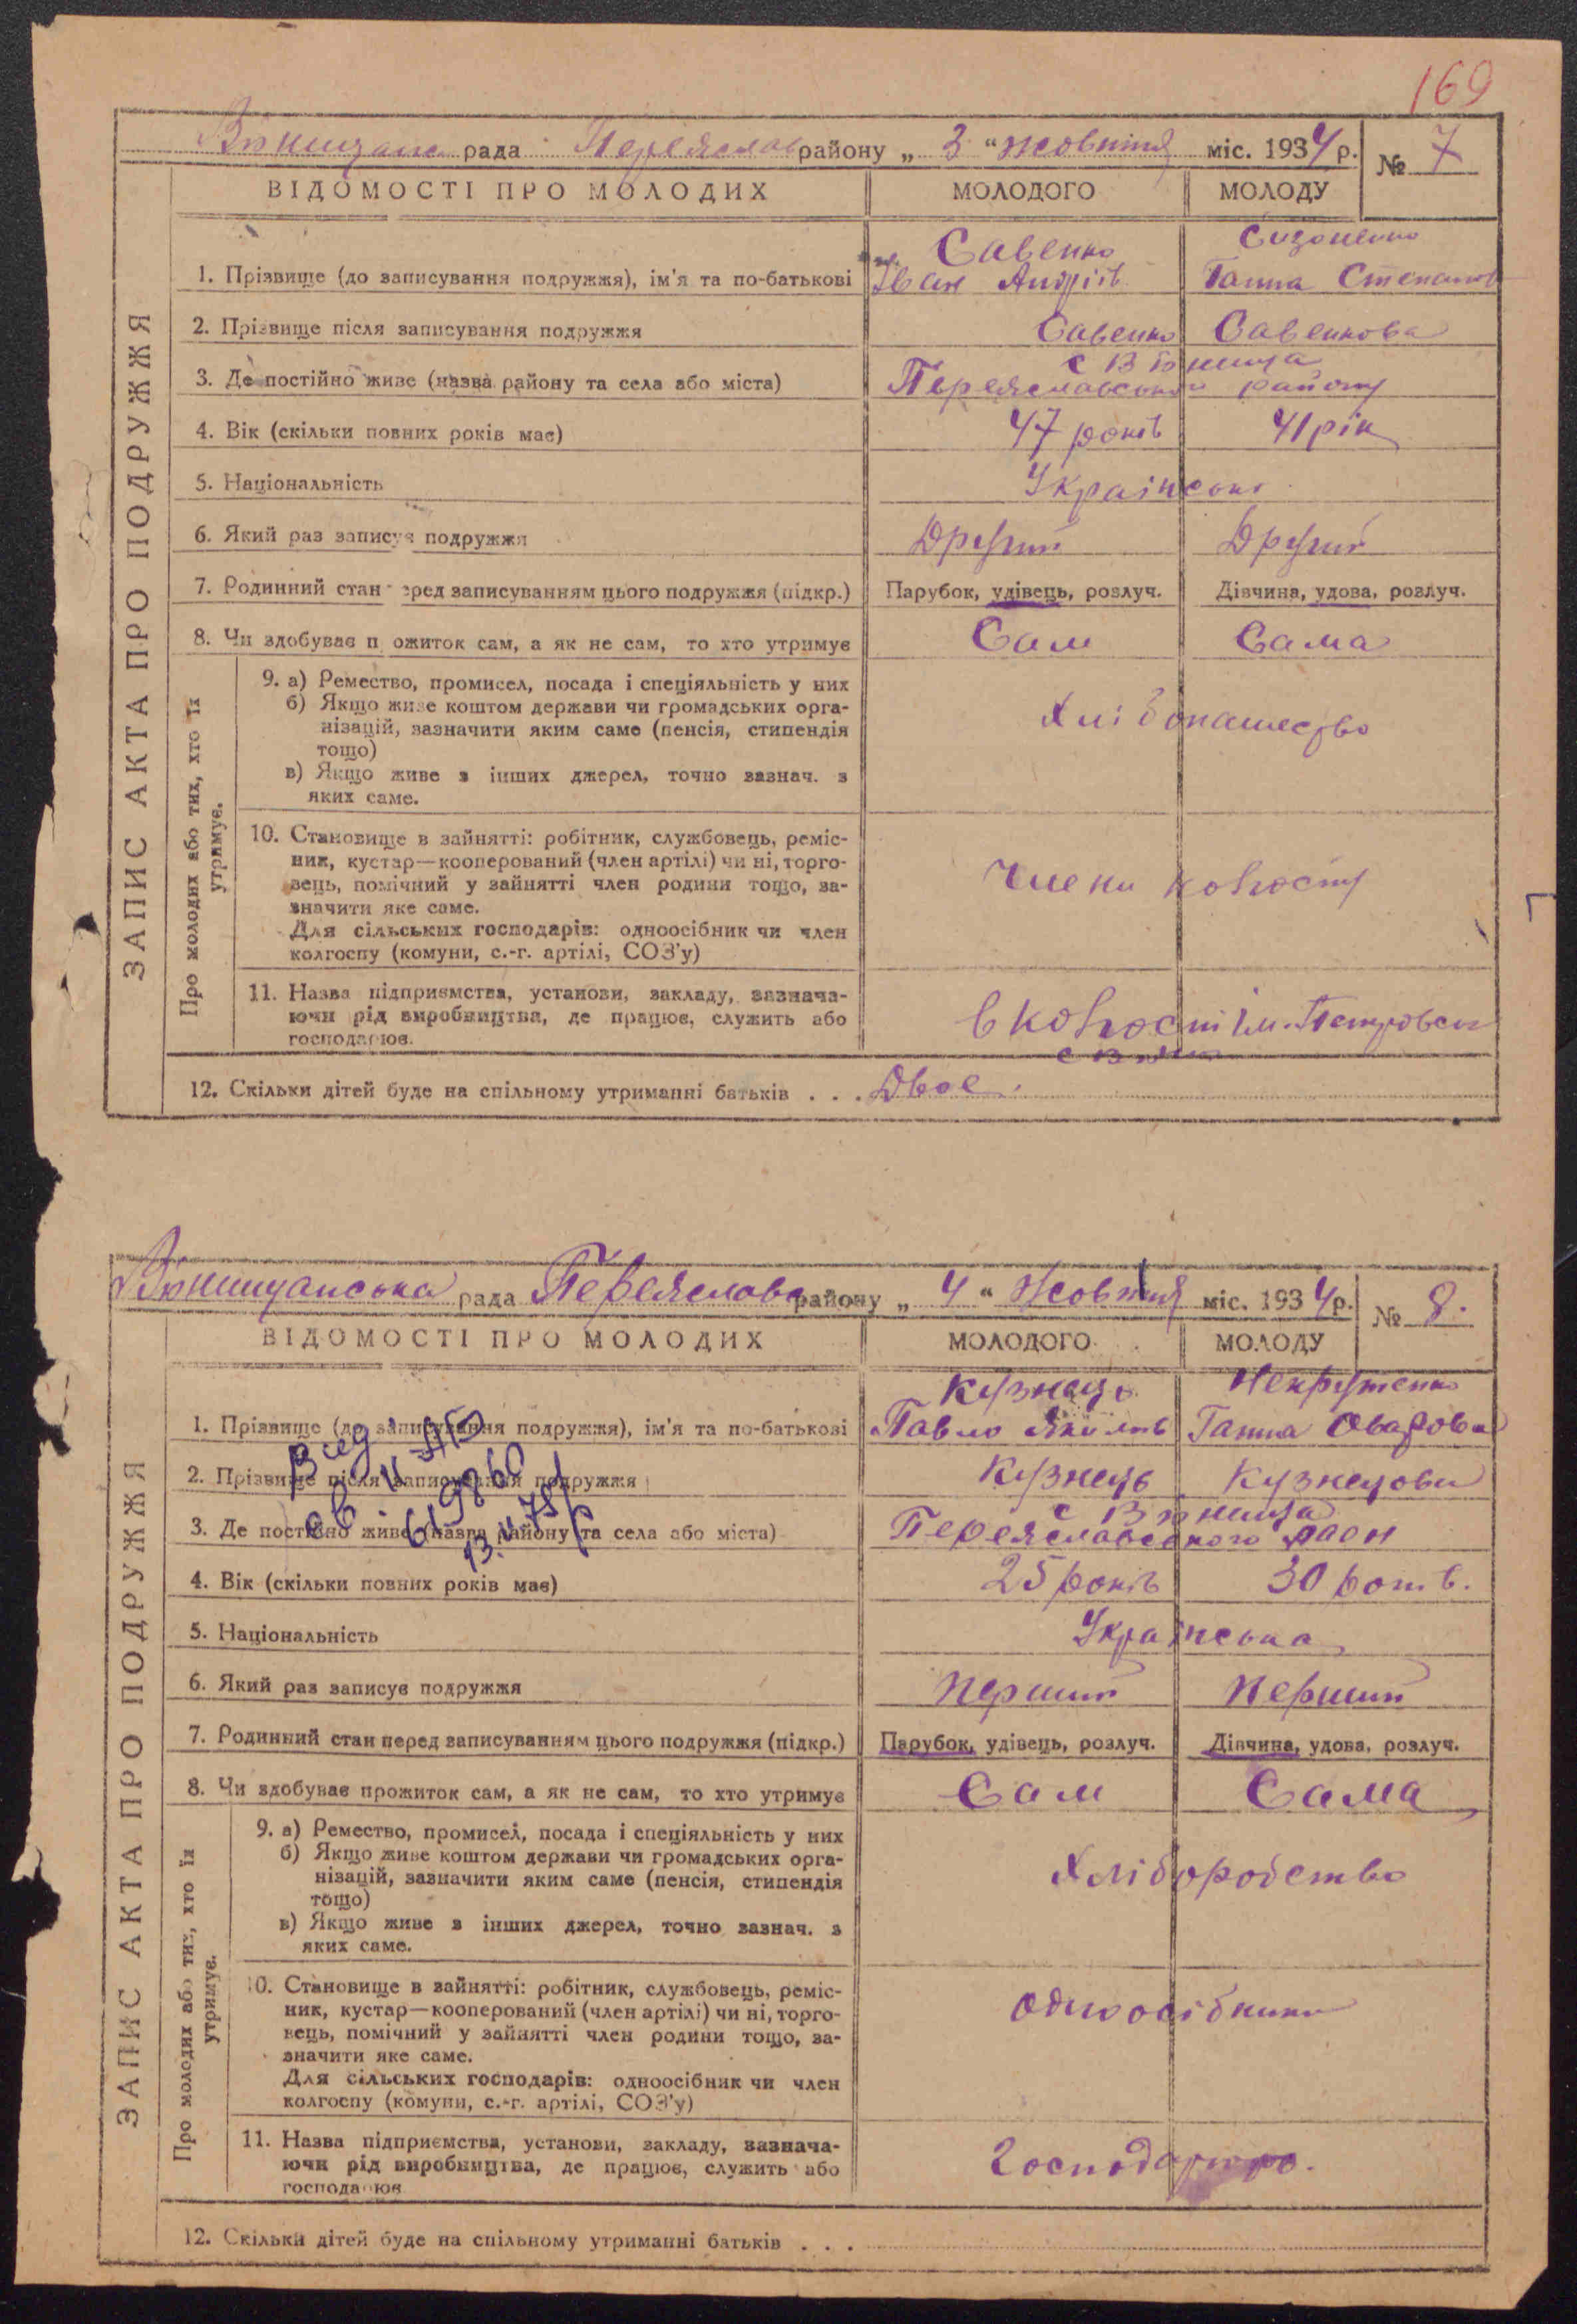 169
Вюнищанс рада Переяслав району „ 3 “ жовтня міс. 1934 р. № 7
ВІДОМОСТІ ПРО МОЛОДИХ МОЛОДОГО МОЛОДУ
ЗАПИС АКТА ПРО ПОДРУЖЖЯ
Савенко
1. Прізвище (до записування подружжя), ім'я та по-батькові Іван Андріїв Ганна Степанов
2. Прізвище після записування подружжя Савенко Савенкова
с Вюнища
3. Де постійно живе (назва району та села або міста) Переяславського району
4. Вік (скільки повних років має) 47 років 41 рік
5. Національність Українські
6. Який раз записує подружжя Другий Другий
7. Родинний стан перед записуванням цього подружжя (підкр.) Парубок, удівець, розлуч. Дівчина, удова, розлуч.
8. Чи здобуває п ожиток сам, а як не сам, то хто утримує Сам Сама
Про молодих або тих, хто їх утримує.
9. а) Ремество, промисел, посада і спеціяльність у них
б) Якщо живе коштом держави чи громадських орга-
нізацій, зазначити яким саме (пенсія, стипендія
тощо)
в) Якщо живе з інших джерел, точно зазнач. з
яких саме.
10. Становище в зайнятті: робітник, службовець, реміс-
ник, кустар—кооперований (член артілі) чи ні, торго-
вець, помічний у зайнятті член родини тощо, за-
значити яке саме.
Члени
Для сільських господарів: одноосібник чи член
колгоспу (комуни, с.-г. артілі, СОЗ'у)
11. Назва підприємства, установи, закладу, зазнача-
ючи рід виробництва, де працює, служить або
господарює.
12. Скільки дітей буде на спільному утриманні батьків . . . Двоє.
Вюнищанська рада Переяславс району „ 4 “ Жовтня міс. 1934 р. № 8.
ВІДОМОСТІ ПРО МОЛОДИХ МОЛОДОГО МОЛОДУ
ЗАПИС АКТА ПРО ПОДРУЖЖЯ
Кузнець Некрутенко
1. Прізвище (до записування подружжя), ім'я та по-батькові Павло Якимів Ганна
2. Прізвище після записування подружжя Кузнець Кузнецова
с Вюнища
3. Де постійно живе (назва району та села або міста) Переяславського раон
4. Вік (скільки повних років має) 25 років 30 років.
5. Національність Українська
6. Який раз записує подружжя Перший Перший
7. Родинний стан перед записуванням цього подружжя (підкр.) Парубок, удівець, розлуч. Дівчина, удова, розлуч.
8. Чи здобуває прожиток сам, а як не сам, то хто утримує Сам Сама
Про молодих або тих, хто їх утримує.
9. а) Ремество, промисел, посада і спеціяльність у них
б) Якщо живе коштом держави чи громадських орга-
нізацій, зазначити яким саме (пенсія, стипендія
тощо)
в) Якщо живе з інших джерел, точно зазнач. з
яких саме.
Хліборобство
10. Становище в зайнятті: робітник, службовець, реміс-
ник, кустар—кооперований (член артілі) чи ні, торго-
вець, помічний у зайнятті член родини тощо, за-
значити яке саме.
Для сільських господарів: одноосібник чи член
колгоспу (комуни, с.-г. артілі, СОЗ'у)
11. Назва підприємства, установи, закладу, зазнача-
ючи рід виробництва, де працює, служить або
господарює
12. Скільки дітей буде на спільному утриманні батьків . . .